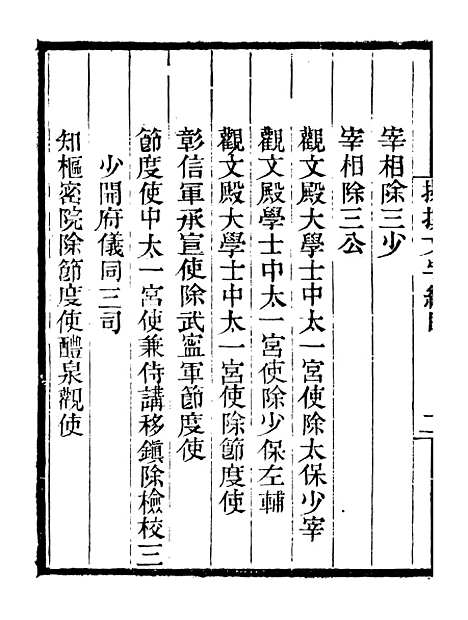 宰相除三少
宰相除三公
觀文殿大學士中太一宮使除太保少宰
觀文殿學士中太一宮使除少保左輔
觀文殿大學士中太一宮使除節度使
彰信軍承宣使除武寧軍節度使
節度使中太一宮使兼侍講移鎭除檢校三
少開府儀同三司
知樞密院除節度使醴泉觀使
二